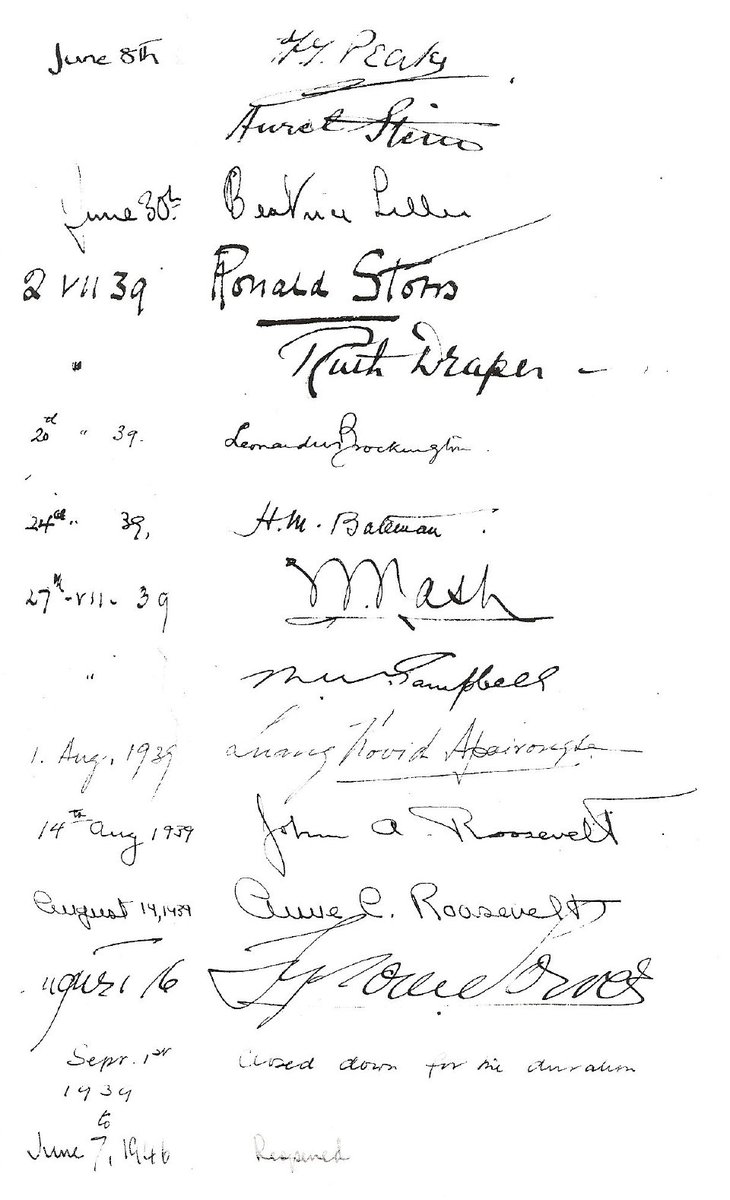 June 8th F.G. Peake
Aurel Stein
June 30th Beatrice Lillie
2 VII 39 Ronald Storrs
" Ruth Draper
20d " 39. Leonard Brockington
24th " 39, H.M. Bateman
27th-VII- 39 Nash
" Campbell
1. Aug. 1939 Luang Kovid Apaiwongse
14th Aug 1939 John A. Roosevelt
August 14, 1939 Anne C. Roosevelt
August 16 Tyrone Power
Sept. 1st Closed down for the duration
1939
to
June 7, 1946 Reopened